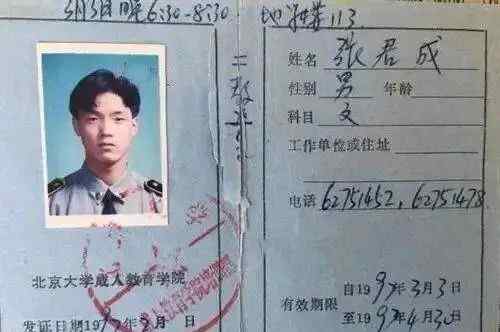 3月3日晚6:30-8:30 地 113
二教
北京大学成人教育学院
发证日期1997年3月 日
姓名 张君成
性别 男 年龄
科目 文
工作单位或住址
电话 62751452, 62751478
有效期限
自1997年3月3日
至1997年4月30日